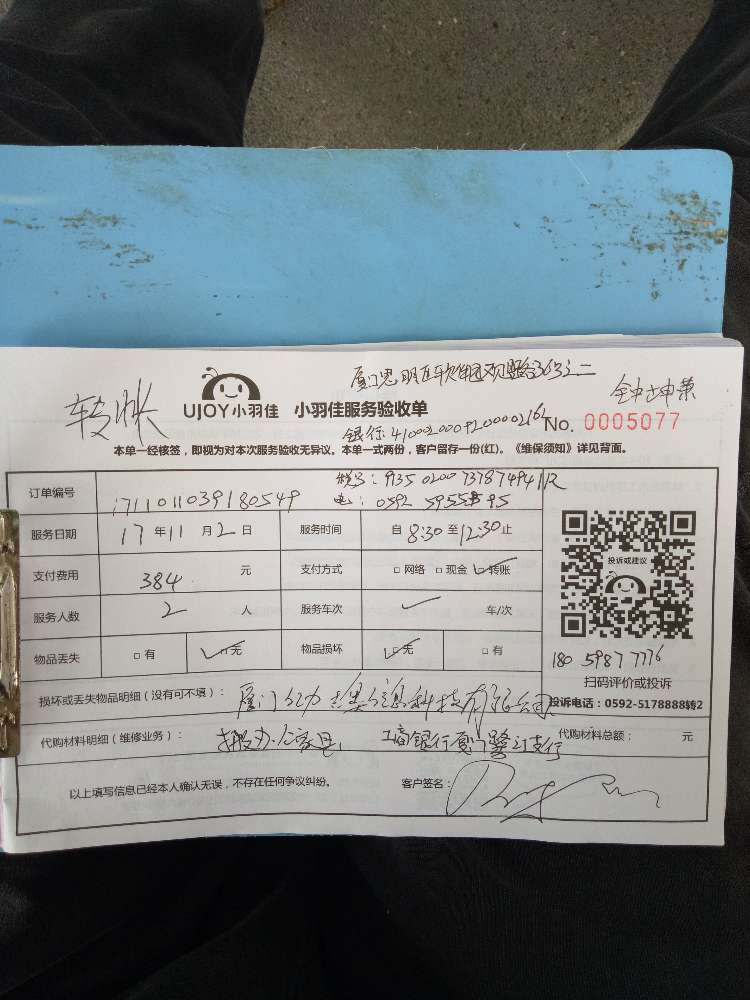 厦门思明区软件园观日路36号之二
转账
UJOY小羽佳 小羽佳服务验收单
No. 0005077
银行:4100020009200002162
本单一经核签，即视为对本次服务验收无异议。本单一式两份，客户留存一份(红)。《维保须知》详见背面。
税号:913502007378749411R
订单编号 1711011039180549
电:0592 5955 95
服务日期 17年11月2日 服务时间 自8:30至12:30止
支付费用 384元 支付方式 □网络 □现金 ☑转账
投诉或建议
服务人数 2人 服务车次 车/次
物品丢失 □有 ☑无 物品损坏 ☑无 □有
180 5987 7776
扫码评价或投诉
损坏或丢失物品明细（没有可不填）: 厦门 信息科技有限公司
投诉电话：0592-5178888转2
代购材料明细（维修业务）: 搬办公家具 工商银行厦门 支行 代购材料总额: 元
以上填写信息已经本人确认无误，不存在任何争议纠纷。 客户签名: